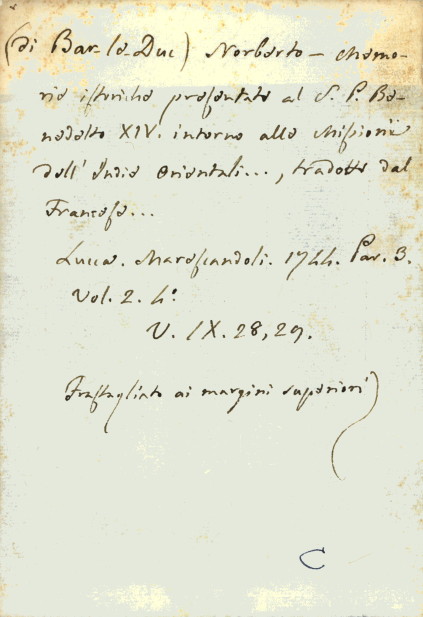 (di Bar-le-Duc) Norberto - Memo-
rie istoriche presentate al S. P. Be-
nedetto XIV. intorno alle Missioni
dell' Indie Orientali..., tradotte dal
Francese...
Lucca. Marescandoli. 1744. Par. 3.
Vol. 2. 4°
V. IX. 28, 29.
Frastagliato ai margini superiori)
C